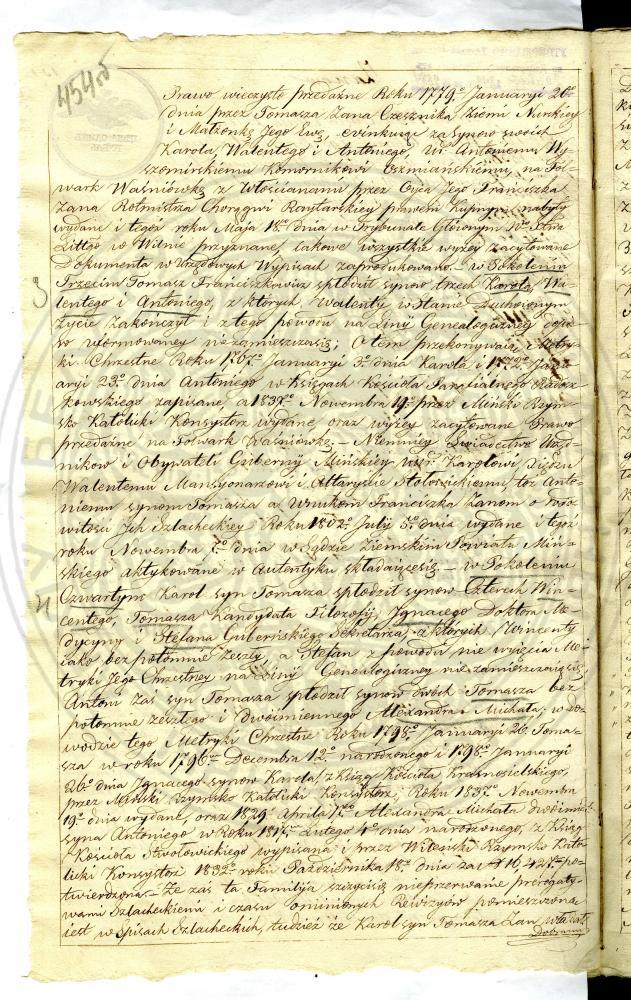 454 об
Prawo wieczysto przedażne Roku 1779o Januaryi 20o
dnia przez Tomasza Zana Czesznika Ziemi Nurskiey
i Małżonkę Jego Ewę, ewinkując za synow swoich
Karola, Walentego i Antoniego, Antoniemu Wy-
szomirskiemu Komornikowi Oszmiańskiemu, na Fol-
wark Waśniówkę z Włościanami przez Oyca Jego Franciszka
Zana Rotmistrza Chorągwi Raytarskiey prawem Kupnym nabyty
wydane i tegoż roku Maja 18o dnia w Trybunale Głównym
Littgo w Wilnie przyznane, jakowe wszystkie wyżey zacytowane
Dokumenta w Urzędowych Wypisach zaprodukowano. – w Pokoleniu
3
Trzecim Tomasz Franciszkowicz spłodził synow trzech Karola, Wa-
lentego i Antoniego, z których Walenty w Stanie Duchownym
życie zakończył i z tego powodu na Linij Genealogiczney
uformowaney niezamieszcza się; O tém przekonywaią Metry-
ki Chrzestne Roku 1767o Januaryi 3o dnia Karola i Janu-
aryi 23o dnia Antoniego w Księgach Kościoła Parafialnego Radosz-
kowskiego zapisane a Novembra 19o przez Miński Rzym-
sko Katolicki Konsystorz wydane oraz wyżey zacytowane Prawo
przedażne na Folwark Waśniówkę; – Niemniey Świadectwo Urzęd-
nikow i Obywateli Gubernij Mińskiey Karolowi Xiędzu
Walentemu Mansyonarzowi i Altaryscie Stołowickiemu toż Anto-
niemu synom Tomasza a Wnukom Franciszka Zanom o Rodo-
witości Ich Szlacheckiey Roku 1802o Julij 5o dnia wydane i tegoż
roku Novembra dnia w Sądzie Ziemskim Powiatu Miń-
skiego aktykowane w Autentyku składaią się – w Pokoleniu
4
Czwartym Karol syn Tomasza spłodził synow Czterech Win-
centego, Tomasza Kandydata Filozofij, Ignacego Doktora Me-
dycyny i Stefana Guberńskiego Sekretarza, z których Wincenty
jako bezpotomnie zeszły a Stefan z powodu nie wyięcia Me-
tryki Jego Chrzestney na Linij Genealogiczney niezamieszczaią się
Antoni zaś syn Tomasza spłodził synow dwóch Tomasza bez
potomnie zeszłego i dwóimiennego Alexandra Michała; w do-
wodzie tego Metryki Chrzestne Roku 1798o Januaryi 26o Toma-
sza w roku 1796m Decembra 12o narodzonego i 1798o Januaryi
26o dnia Ignacego synow Karola, z Ksiąg Kościoła Krasnosielskiego,
przez Miński Rzymsko Katolicki Konsystorz, Roku 1837o Novembra
19o dnia wydane, oraz 1829o Aprila Alexandra Michała dwóimien.
syna Antoniego w Roku Lutego 4o dnia narodzonego, z Ksiąg
Kościoła Stwołowickiego wypisana i przez Wileński Rzymsko Kato-
licki Konsystorz 1832o roku Października 18o dnia za No po-
twierdzona. – Że zaś ta Familija szczyci się nieprzerwanie prerogaty-
wami Szlacheckiemi i czasu ominionych Rewizyow pomieszczona
iest w Spisach Szlacheckich, tudzież że Karol syn Tomasza Zan władał
Dobrami